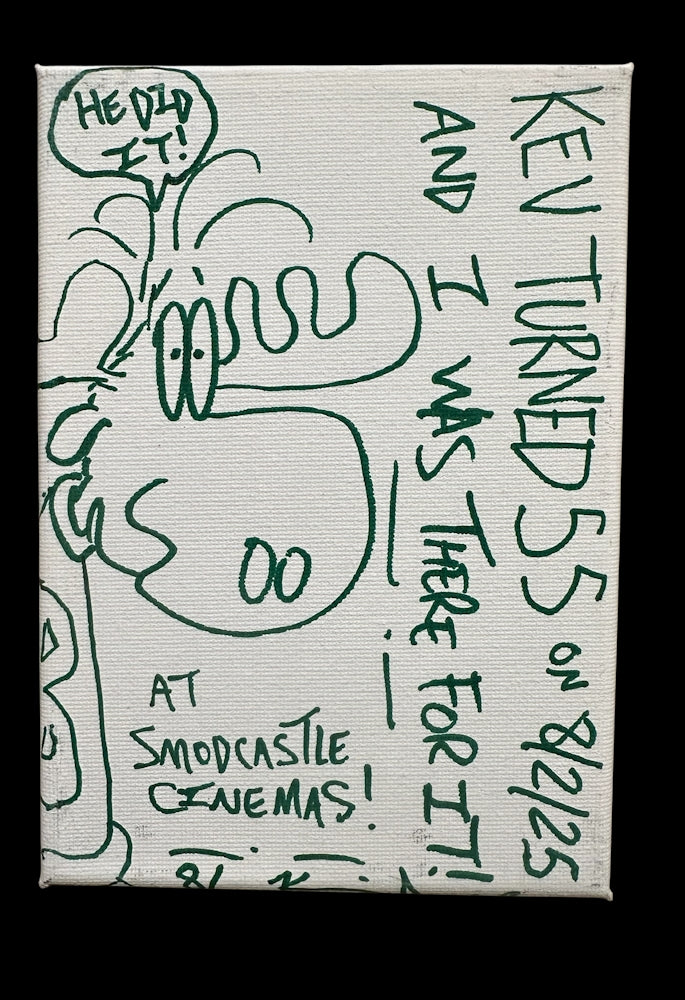 HE DID
IT!
KEV TURNED 55 ON 8/2/25
AND I WAS THERE FOR IT!
AT
SMODCASTLE
CINEMAS!